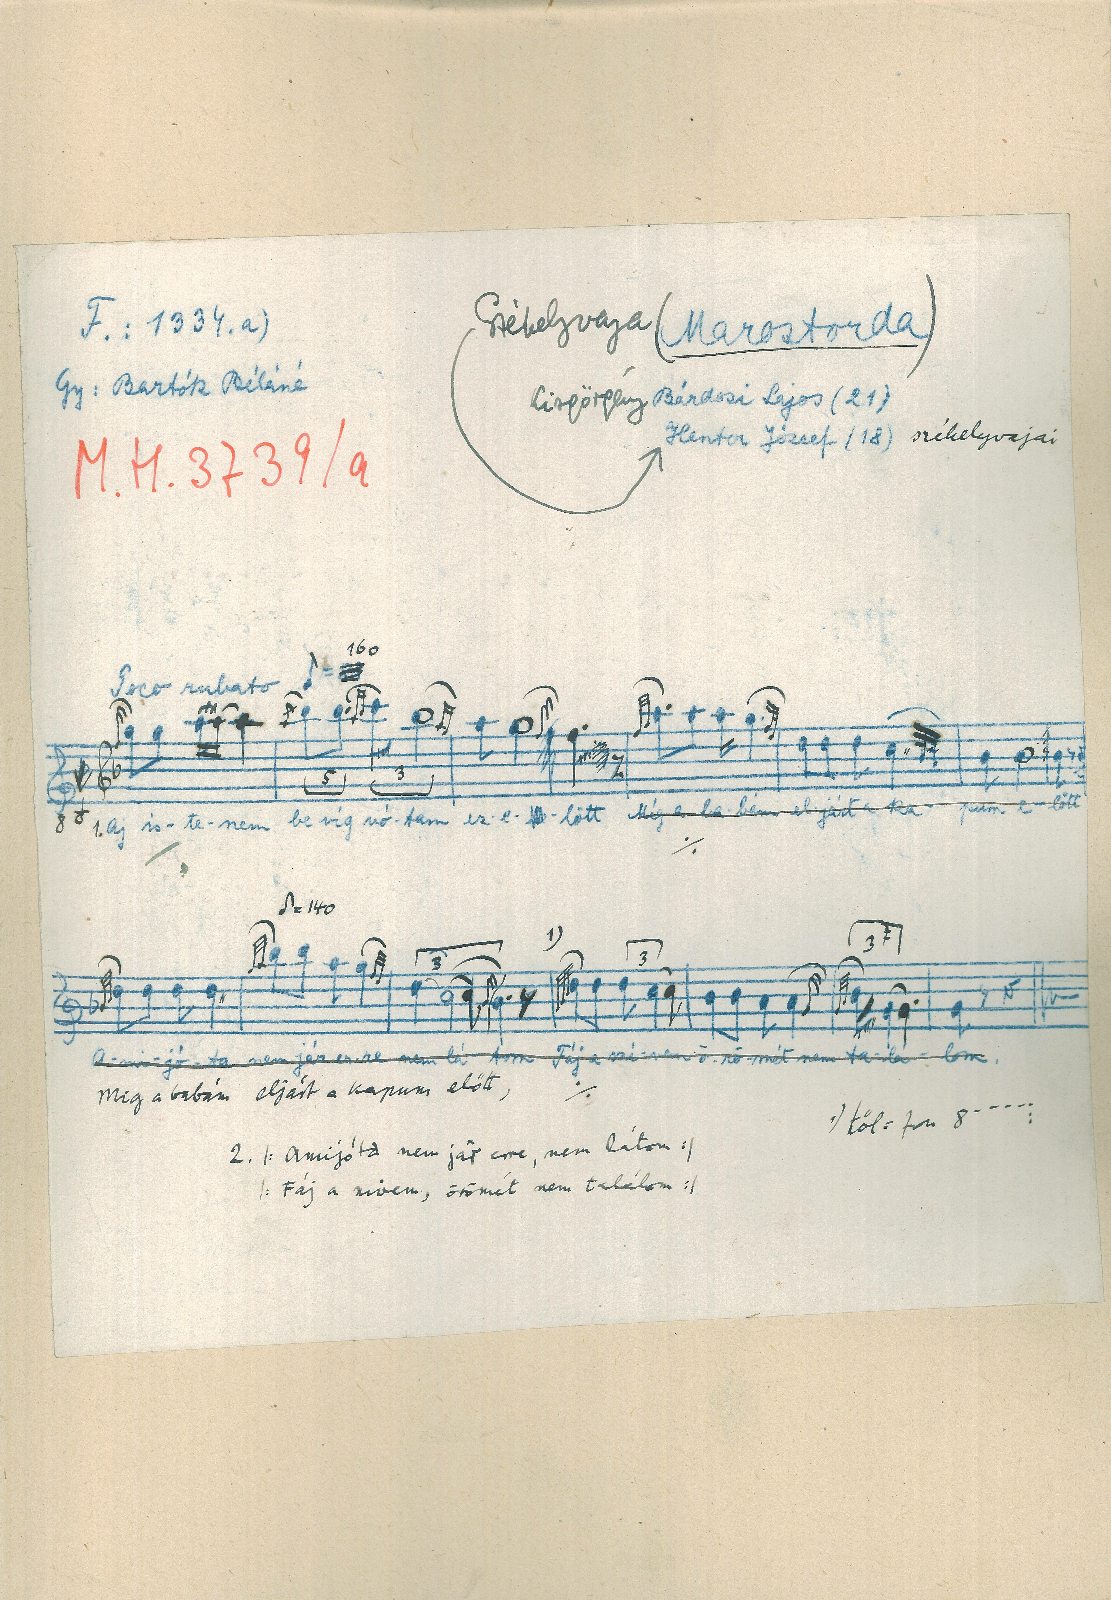 F.: 1334.a)
Székelyvaja (Marostorda)
Gy: Bartók Béláné
Kisgörgény Bárdosi Lajos (21)
Henter József (18) székelyvajai
M.H. 3739/a
160
Poco rubato ♪ =
5 3
8
1. Aj is-te-nem be víg vó-tam ez-e-lőtt Míg a ba-bám el-járt a ka-pum e-lőtt
./.
♪=140
3 1) 3 3
A-mi-jó-ta nem jár er-re nem lá-tom Fáj a szí-vem ö-rö-mét nem ta-lá-lom.
Míg a babám eljárt a kapum előtt, ./.
1) től= fon 8-----:
2. |: Amijóta nem jár erre, nem látom :|
|: Fáj a szivem, örömét nem találom :|